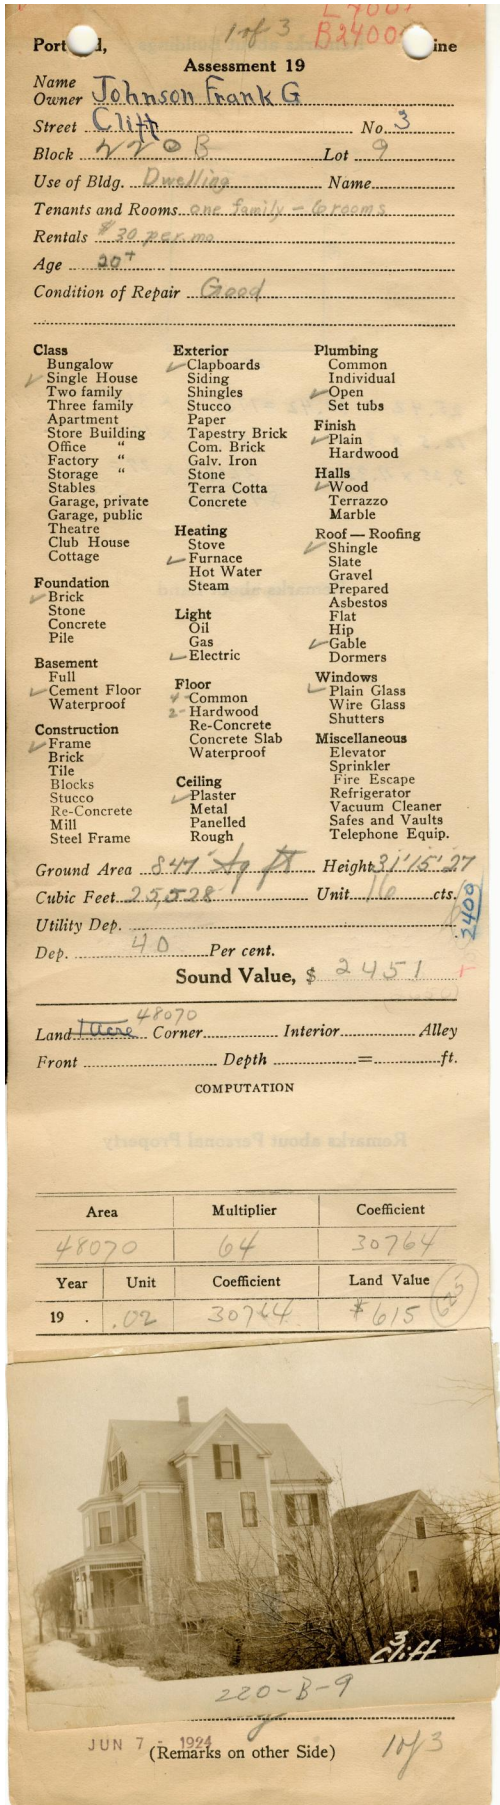 1 of 3
B2400
Port d, ine
Assessment 19
Name
Owner Johnson Frank G
Street Cliff No. 3
Block 220 B Lot 9
Use of Bldg. Dwelling Name
Tenants and Rooms one family - 6 rooms
Rentals $30 per mo
Age 20+
Condition of Repair Good
Class
Bungalow
✓ Single House
Two family
Three family
Apartment
Store Building
Office "
Factory "
Storage "
Stables
Garage, private
Garage, public
Theatre
Club House
Cottage
Foundation
✓ Brick
Stone
Concrete
Pile
Basement
Full
✓ Cement Floor
Waterproof
Construction
✓ Frame
Brick
Tile
Blocks
Stucco
Re-Concrete
Mill
Steel Frame
Exterior
✓ Clapboards
Siding
Shingles
Stucco
Paper
Tapestry Brick
Com. Brick
Galv. Iron
Stone
Terra Cotta
Concrete
Heating
Stove
✓ Furnace
Hot Water
Steam
Light
Oil
Gas
✓ Electric
Floor
4 - Common
2 - Hardwood
Re-Concrete
Concrete Slab
Waterproof
Ceiling
✓ Plaster
Metal
Panelled
Rough
Plumbing
Common
Individual
✓ Open
Set tubs
Finish
✓ Plain
Hardwood
Halls
✓ Wood
Terrazzo
Marble
Roof — Roofing
✓ Shingle
Slate
Gravel
Prepared
Asbestos
Flat
Hip
✓ Gable
Dormers
Windows
✓ Plain Glass
Wire Glass
Shutters
Miscellaneous
Elevator
Sprinkler
Fire Escape
Refrigerator
Vacuum Cleaner
Safes and Vaults
Telephone Equip.
Ground Area 847 sq ft Height 31' 15' 27
Cubic Feet 25,528 Unit 16 cts.
Utility Dep.
2400
Dep. 40 Per cent.
Sound Value, $ 2451
48070
Land 1 Acre Corner Interior Alley
Front Depth = ft.
COMPUTATION
Area Multiplier Coefficient
48070 64 30764
Year Unit Coefficient Land Value
19 . .02 30764 $615
3
Cliff
220-B-9
JUN 7 - 1924
(Remarks on other Side) 1 of 3